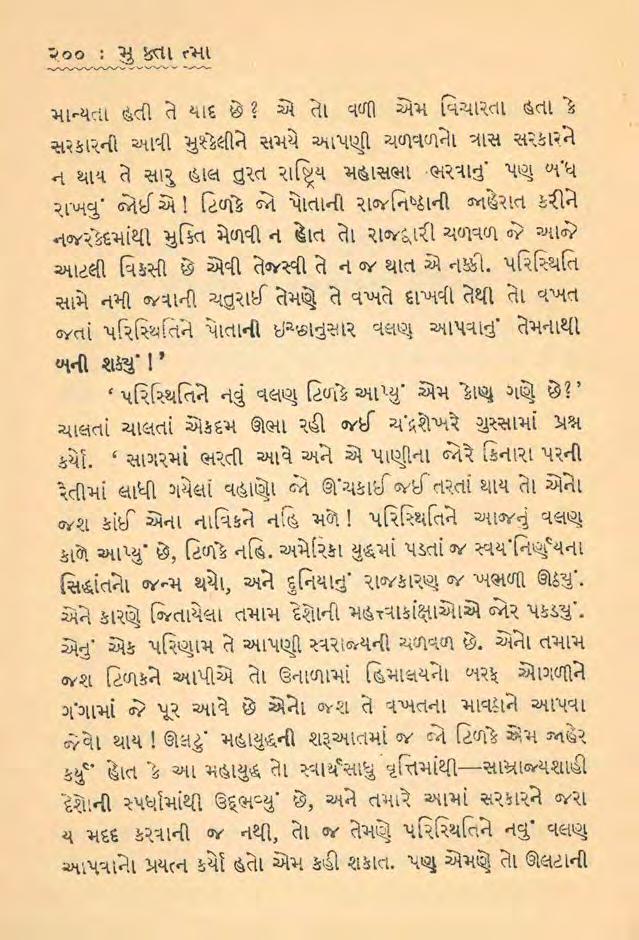 ૨૦૦ : મુ ક્તા ત્મા
માન્યતા હતી તે યાદ છે? એ તો વળી એમ વિચારતા હતા કે
સરકારની આવી મુશ્કેલીને સમયે આપણી ચળવળનો ત્રાસ સરકારને
ન થાય તે સારુ હાલ તુરત રાષ્ટ્રિય મહાસભા ભરવાનું પણ બંધ
રાખવું જોઈએ! ટિળકે જો પોતાની રાજનિષ્ઠાની જાહેરાત કરીને
નજરકેદમાંથી મુક્તિ મેળવી ન હોત તો રાજદ્વારી ચળવળ જે આજે
આટલી વિકસી છે એવી તેજસ્વી તે ન જ થાત એ નક્કી. પરિસ્થિતિ
સામે નમી જવાની ચતુરાઈ તેમણે તે વખતે દાખવી તેથી તો વખત
જતાં પરિસ્થિતિને પોતાની ઇચ્છાનુસાર વલણ આપવાનું તેમનાથી
બની શક્યું!’
‘ પરિસ્થિતિને નવું વલણ ટિળકે આપ્યું એમ કોણ ગણે છે?’
ચાલતાં ચાલતાં એકદમ ઊભા રહી જઈ ચંદ્રશેખરે ગુસ્સામાં પ્રશ્ન
કર્યો. ‘ સાગરમાં ભરતી આવે અને એ પાણીના જોરે કિનારા પરની
રેતીમાં લાધી ગયેલાં વહાણો જો ઊંચકાઈ જઈ તરતાં થાય તો એનો
જશ કાંઈ એના નાવિકને નહિ મળે! પરિસ્થિતિને આજનું વલણ
કાળે આપ્યું છે, ટિળકે નહિ. અમેરિકા યુદ્ધમાં પડતાં જ સ્વયંનિર્ણયના
સિદ્ધાંતનો જન્મ થયો, અને દુનિયાનું રાજકારણ જ ખભળી ઊઠ્યું.
એને કારણે જિતાયેલા તમામ દેશોની મહત્ત્વાકાંક્ષાઓએ જોર પકડ્યું.
એનું એક પરિણામ તે આપણી સ્વરાજ્યની ચળવળ છે. એનો તમામ
જશ ટિળકને આપીએ તો ઉનાળામાં હિમાલયનો બરફ ઓગળીને
ગંગામાં જે પૂર આવે છે એનો જશ તે વખતના માવઠાને આપવા
જેવો થાય! ઊલટું મહાયુદ્ધની શરૂઆતમાં જ જો ટિળકે એમ જાહેર
કર્યું હોત કે આ મહાયુદ્ધ તો સ્વાર્થસાધુ વૃત્તિમાંથી—સામ્રાજ્યશાહી
દેશોની સ્પર્ધામાંથી ઉદ્દભવ્યું છે, અને તમારે આમાં સરકારને જરા
ય મદદ કરવાની જ નથી, તો જ તેમણે પરિસ્થિતિને નવું વલણ
આપવાનો પ્રયત્ન કર્યો હતો એમ કહી શકાત. પણ એમણે તો ઊલટાની